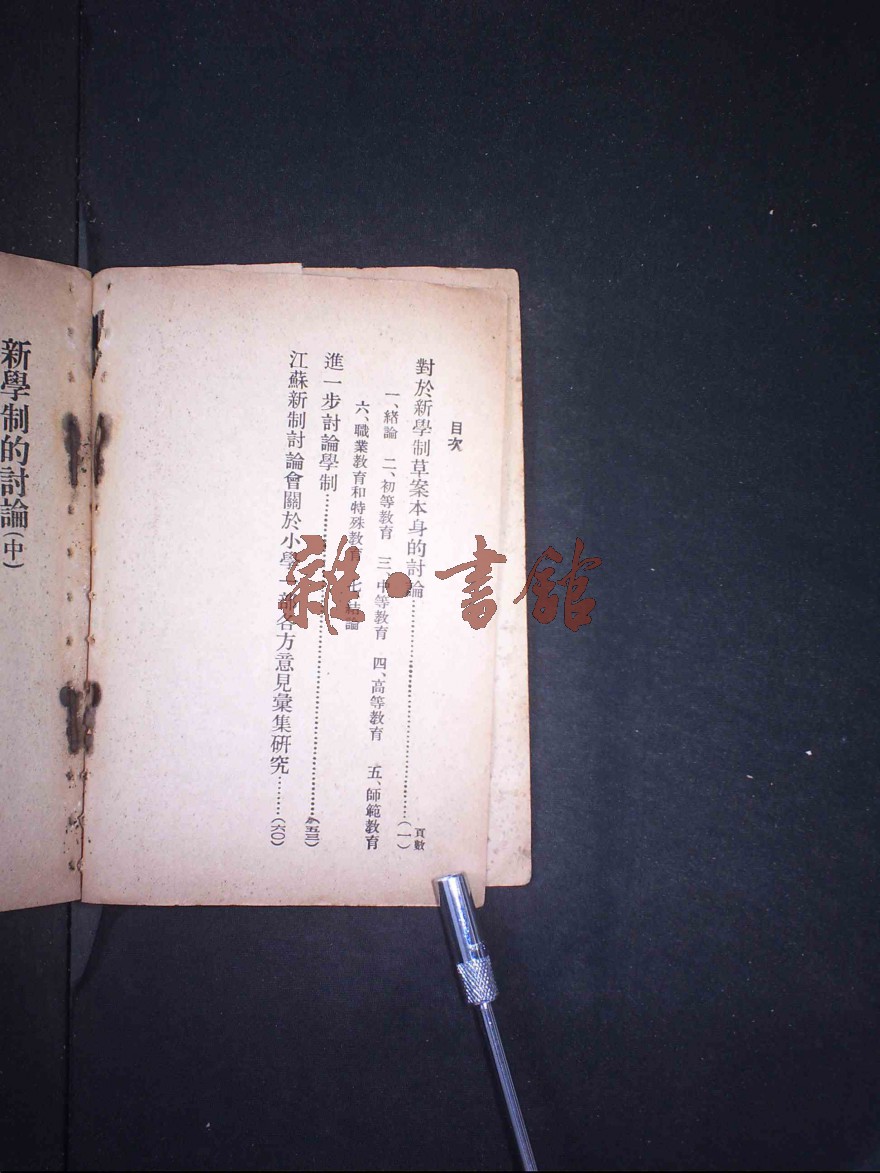 目次
頁數
對於新學制草案本身的討論……(一)
一、緒論 二、初等教育 三、中等教育 四、高等教育 五、師範教育
六、職業教育和特殊教育 七、結論
進一步討論學制……(五三)
江蘇新制討論會關於小學一部各方意見彙集研究……(六〇)
新學制的討論(中)
雜·書館